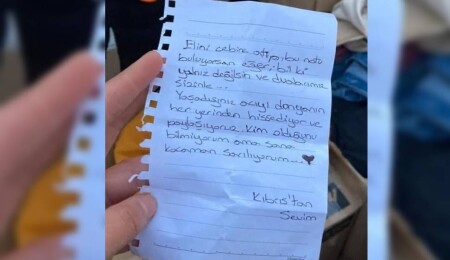 Elini cebine attıysan bu notu
buluyorsan eğer bil ki
yalnız değilsin ve dualarımız
sizinle...
Yaşadığınız acıyı dünyanın
her yerinden hissediyor ve
paylaşıyoruz kim olduğunu
bilmiyorum ama sana
kocaman sarılıyorum.... ♥
Kıbrıs'tan
Sevim